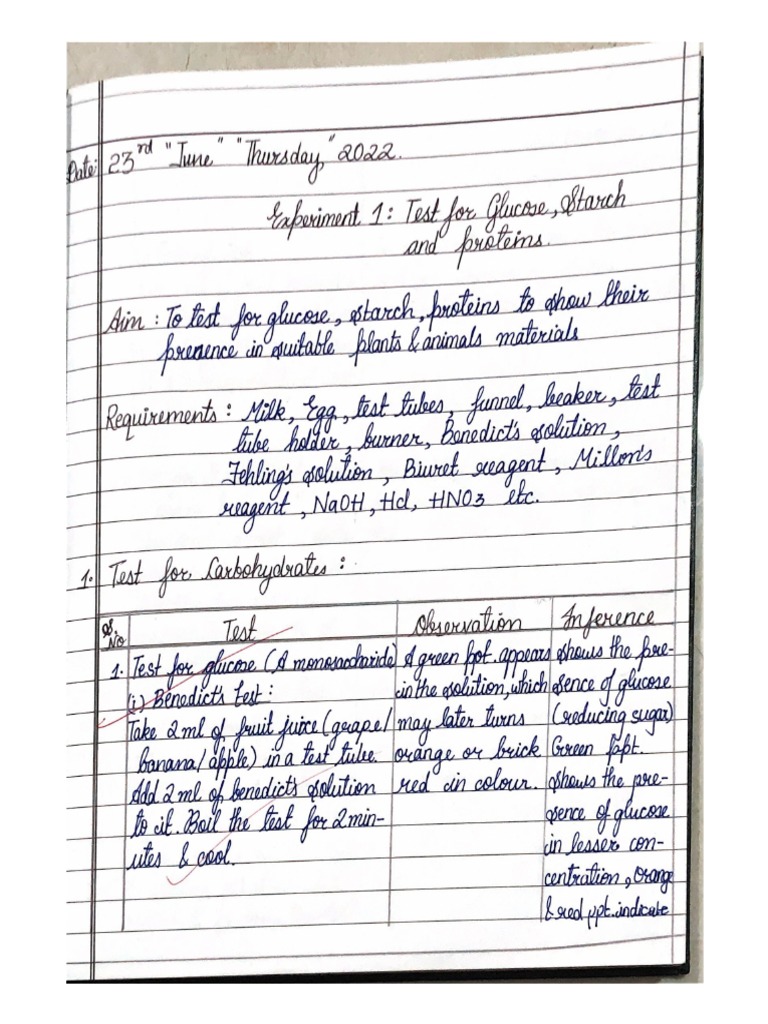 Date: 23rd "June" "Thursday," 2022.
Experiment 1: Test for Glucose, Starch
and proteins.
Aim : To test for glucose, starch, proteins to show their
presence in suitable plants & animals materials
Requirements : Milk, Egg, test tubes, funnel, beaker, test
tube holder, burner, Benedict's solution,
Fehling's solution, Biuret reagent, Millon's
reagent, NaOH, Hcl, HNO3 etc.
1. Test for Carbohydrates :
S. No
Test
Observation
Inference
1. Test for glucose (A monosaccharide)
(i) Benedict's test :
Take 2 ml of fruit juice (grape/
banana/apple) in a test tube.
Add 2 ml of benedict's solution
to it. Boil the test for 2 min-
utes & cool.
A green ppt. appears
in the solution, which
may later turns
orange or brick
red in colour.
shows the pre-
sence of glucose
(reducing sugar)
Green ppt.
shows the pre-
sence of glucose
in lesser con-
centration, Orange
& red ppt. indicate